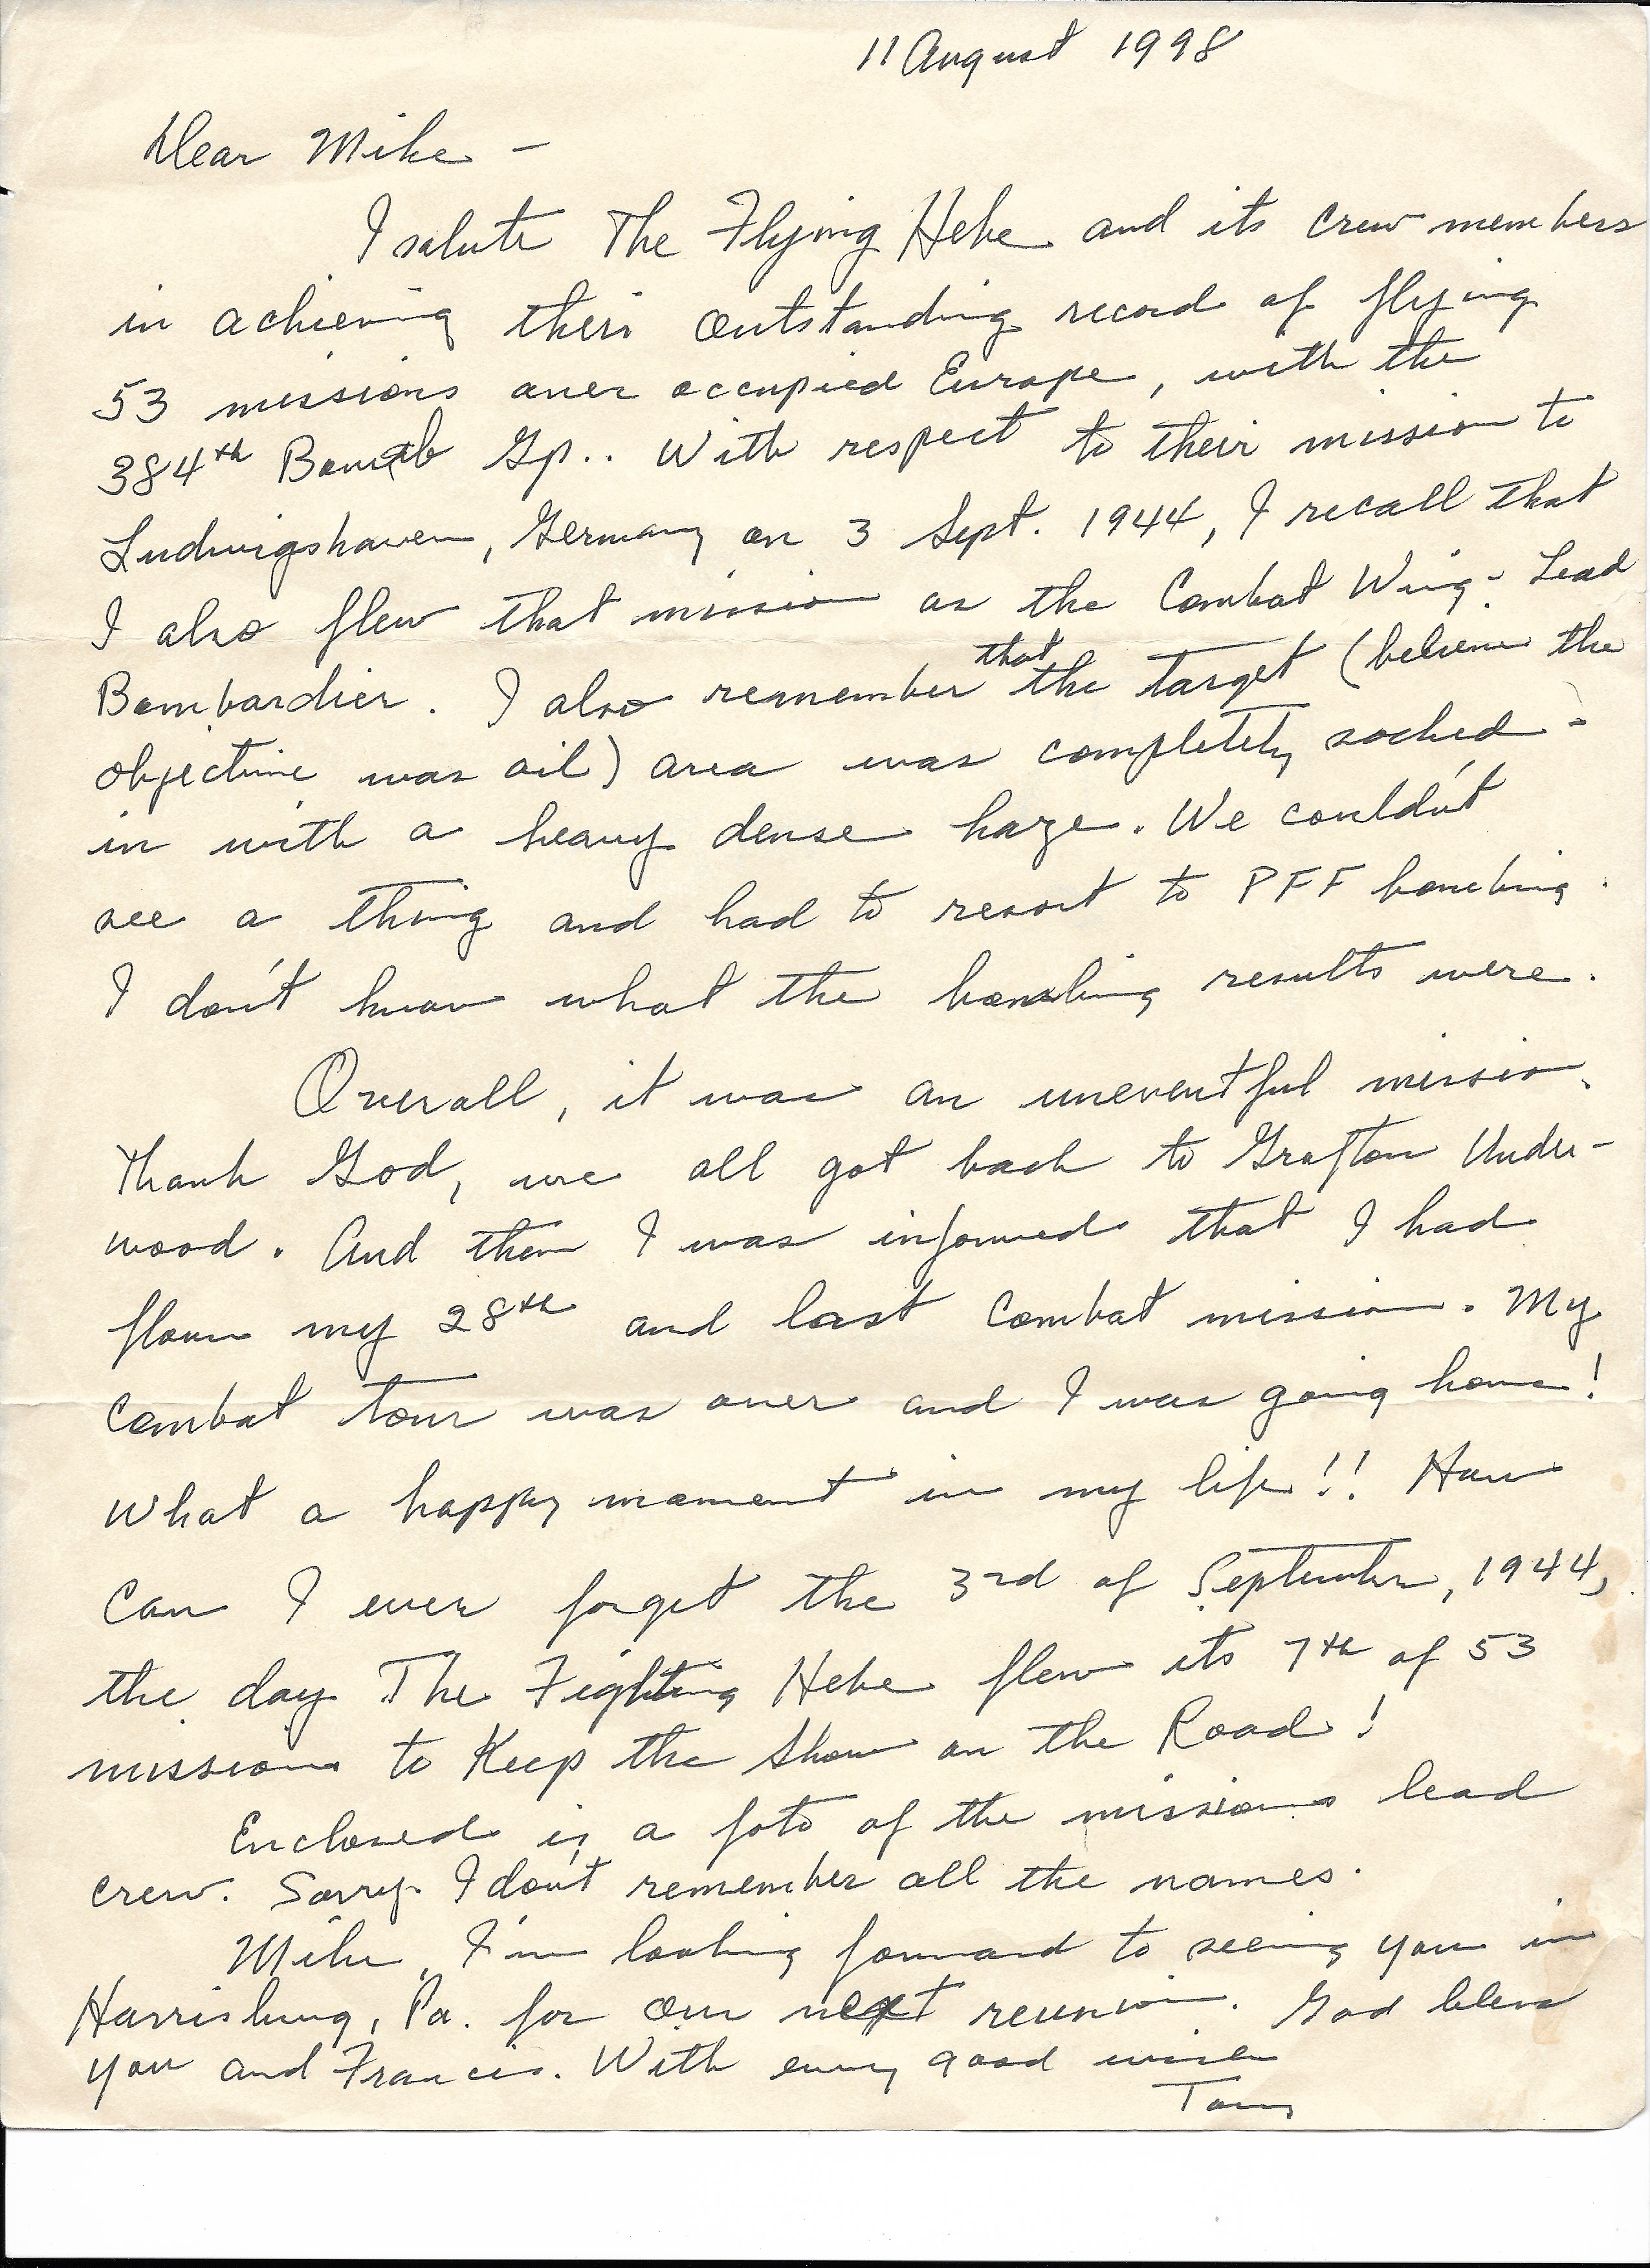 11 August 1998
Dear Mike -
I salute The Flying Hebe and its crew members
in achieving their outstanding record of flying
53 missions over occupied Europe, with the
384th Bomb Gp.. With respect to their mission to
Ludwigshaven, Germany on 3 Sept. 1944, I recall that
I also flew that mission as the Combat Wing - Lead
Bombardier. I also remember that the target (believe the
objective was oil) area was completely socked -
in with a heavy dense haze. We couldn't
see a thing and had to resort to PFF bombing.
I don't know what the bombing results were.
Overall, it was an uneventful mission.
Thank God, we all got back to Grafton Under-
wood. And then I was informed that I had
flown my 28th and last combat mission. My
combat tour was over and I was going home!
What a happy moment in my life!! How
can I ever forget the 3rd of September, 1944,
the day The Fighting Hebe flew its 7th of 53
missions to Keep the Show on the Road!
Enclosed is a foto of the missions lead
crew. Sorry I don't remember all the names.
Mike, I'm looking forward to seeing you in
Harrisburg, Pa. for our next reunion. God bless
you and Francis. With every good wish
Tony